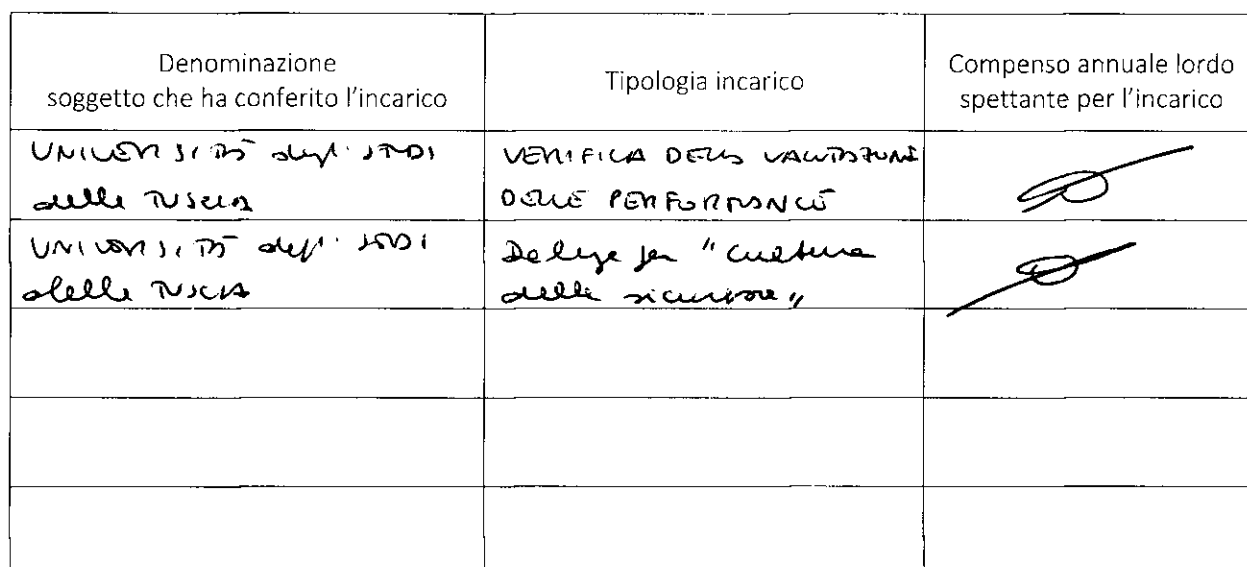 Denominazione
soggetto che ha conferito l'incarico
Tipologia incarico
Compenso annuale lordo
spettante per l'incarico
UNIVERSITÀ degli STUDI
della TUSCIA
VERIFICA DELLA VALUTAZIONE
DELLE PERFORMANCE
UNIVERSITÀ degli STUDI
della TUSCIA
Delega per "cultura
della sicurezza"